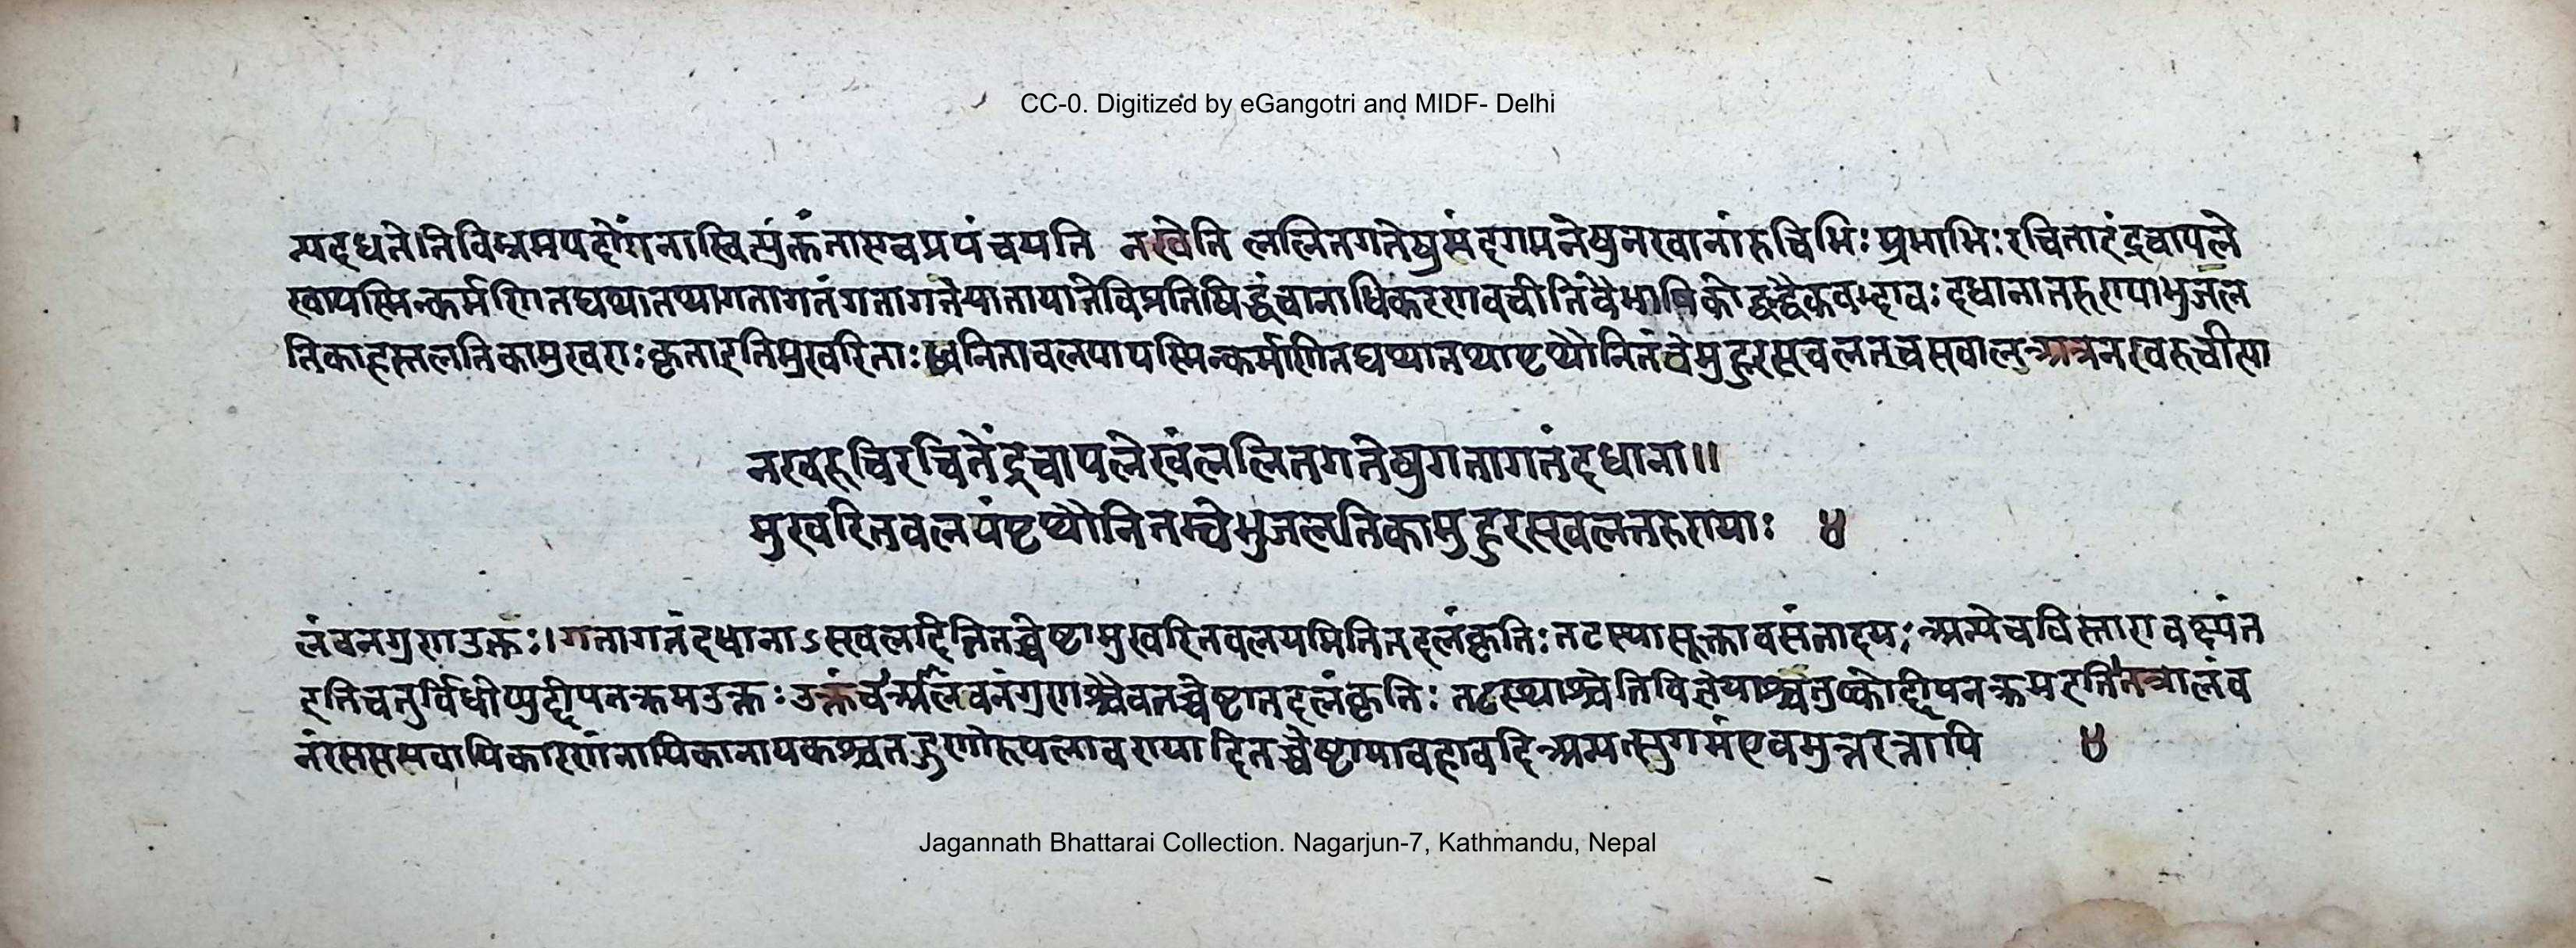 CC-0. Digitized by eGangotri and MIDF- Delhi
न्यदधते।तिविभ्रमपदोंगनास्वित्युक्तंनाएवप्रपंचयति नखेति ललितगतेषुसंदगमनेषुनखानांरुचिभिःप्रभाभिःरचिताइंद्रचापले
खायस्मिन्कर्मणितद्यथातथागतागतंगतागतेयातायातेविप्रतिषिद्धंचानाधिकरणवचीतिवैभाषिकोद्वंद्वैकवद्भावःदधानातरुण्याभुजल
तिकाहस्तलतिकामुखराःकृताइतिमुखरिताःध्वनितावलयायस्मिन्कर्मणितद्यथातथापृथौनितंवेमुहुरस्खलतचस्खाल अत्रनखरुचीसा
नखरुचिरचितेंद्रचापलेखंललितगतेषुगतागतंदधाना॥
मुखरितवलयंपृथौनितम्वेभुजलतिकामुहुरस्खलत्तरुण्याः ४
लंवनगुणउक्तः।गतागतंदधानाऽस्खलदितितच्चेष्टामुखरितवलयमितितदलंकृतिःतटस्थास्तूक्तावसंतादयःअन्येचविस्ताराव क्ष्यंत
इतिचतुर्विधोप्युद्दीपनक्रमउक्तःउक्तंचआलंवनंगुणश्चैवतच्चेष्टातदलंकृतिः तटस्थाश्चेतिविज्ञेयाश्चतुष्कोद्दीपनक्रमइतितत्रालंव
नंरसस्समवायिकारणंनायिकानायकश्चतद्गुणोरूपलावण्यादितच्चेष्टाभावहावदिअन्यत्सुगमंएवमुत्तरत्रापि ४
Jagannath Bhattarai Collection. Nagarjun-7, Kathmandu, Nepal